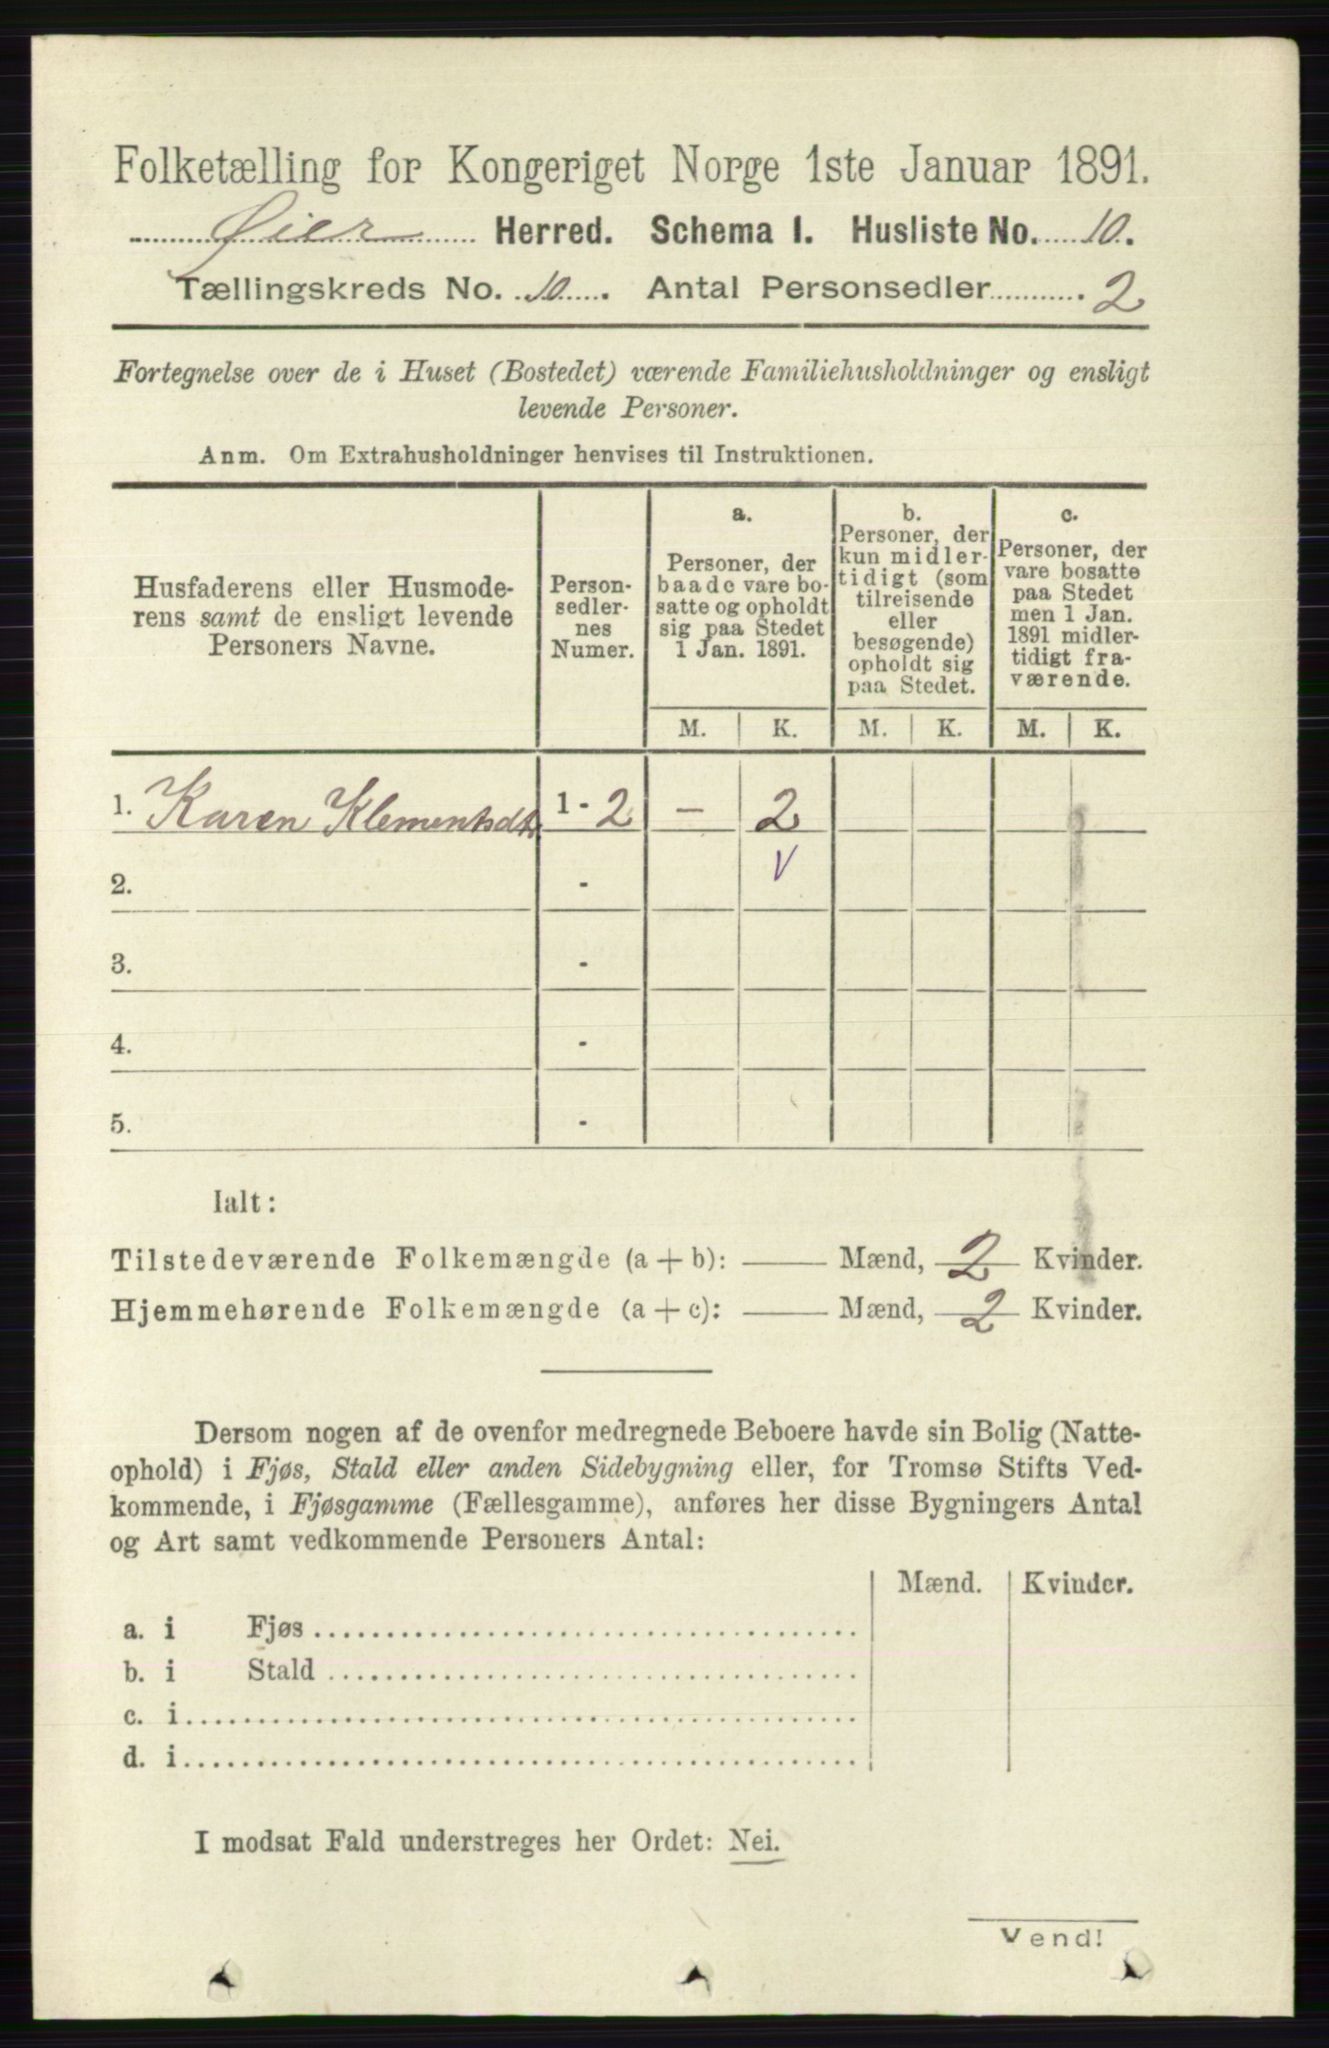 Folketælling for Kongeriget Norge 1ste Januar 1891.
Øier Herred. Schema I. Husliste No. 10.
Tællingskreds No. 10. Antal Personsedler 2
Fortegnelse over de i Huset (Bostedet) værende Familiehusholdninger og ensligt
levende Personer.
Anm. Om Extrahusholdninger henvises til Instruktionen.
Husfaderens eller Husmode-
rens samt de ensligt levende
Personers Navne.
Person-
sedler-
nes
Numer.
a.
Personer, der
baade vare bo-
satte og opholdt
sig paa Stedet
1 Jan. 1891.
b.
Personer, der
kun midler-
tidigt (som
tilreisende
eller
besøgende)
opholdt sig
paa Stedet.
c.
Personer, der
vare bosatte
paa Stedet
men 1 Jan.
1891 midler-
tidigt fra-
værende.
M. K. M. K. M. K.
1. Karen Klementsdtr 1 - 2 – 2
2. - V
3. -
4. -
5. -
Ialt:
Tilstedeværende Folkemængde (a + b): Mænd, 2 Kvinder.
Hjemmehørende Folkemængde (a + c): Mænd, 2 Kvinder.
Dersom nogen af de ovenfor medregnede Beboere havde sin Bolig (Natte-
ophold) i Fjøs, Stald eller anden Sidebygning eller, for Tromsø Stifts Ved-
kommende, i Fjøsgamme (Fællesgamme), anføres her disse Bygningers Antal
og Art samt vedkommende Personers Antal:
Mænd. Kvinder.
a. i Fjøs
b. i Stald
c. i
d. i
I modsat Fald understreges her Ordet: Nei.
Vend!